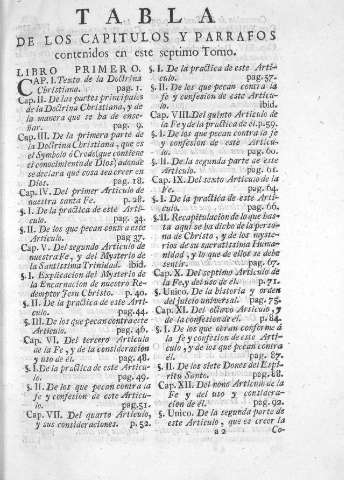 TABLA
DE LOS CAPITULOS Y PARRAFOS
contenidos en este septimo Tomo.
LIBRO PRIMERO.
CAP. I. Texto de la Doctrina
Christiana. pag. 1.
Cap. II. De las partes principales
de la Doctrina Christiana, y de
la manera que se ha de ense-
ñar. pag. 9.
Cap. III. De la primera parte de
la Doctrina Christiana, que es
el Symbolo ò Credo (que contiene
el conocimiento de Dios) adonde
se declara què cosa sea creer en
Dios. pag. 18.
Cap. IV. Del primer Articulo de
nuestra santa Fe. p. 28.
§. I. De la practica de este Arti-
culo. pag. 34.
§. II. De los que pecan contra este
Articulo. pag 37.
Cap. V. Del segundo Articulo de
nuestra Fe, y del Mysterio de
la Santissima Trinidad. ibid.
§. I. Explicacion del Mysterio de
la Encarnacion de nuestro Re-
demptor Jesu Christo. p. 40.
§. II. De la practica de este Arti-
culo. pag. 44.
§. III. De los que pecan contra este
Articulo. pag. 46.
Cap. VI. Del tercero Articulo
de la Fe, y de la consideracion
y uso de èl. pag. 48.
§. I. De la practica de este Articu-
lo. pag. 49.
§. II. De los que pecan contra la
fe y confesion de este Articu-
lo. pag. 51.
Cap. VII. Del quarto Articulo,
y sus consideraciones. p. 52.
§. I. De la practica de este Arti-
culo. pag. 57.
§. II. De los que pecan contra la
fe y confesion de este Articu-
lo. ibid.
Cap. VIII. Del quinto Articulo de
la Fe y de la practica de èl. p. 59.
§. I. De los que pecan contra la fe
y confesion de este Articu-
lo. pag. 60.
§. II. De la segunda parte de este
Articulo. pag. 61.
Cap. IX. Del sexto Articulo de la
Fe. pag. 64.
§. I. De la practica de este Arti-
culo. pag. 66.
§. II. Recapitulacion de lo que has-
ta aqui se ha dicho de la perso-
na de Christo, y de los myste-
rios de su sacratissima Huma-
nidad, y lo que de ellos se debe
sentir. pag. 67.
Cap. X. Del septimo Articulo de
la Fe y del uso de èl. p. 71.
§. Unico. De la historia y orden
del juicio universal. pag. 75.
Cap. XI. Del octavo Articulo, y
de la confesion de èl. p. 84.
§. I. De los que obran conforme à
la fe y confesion de este Arti-
culo, y de los que pecan contra
èl. pag. 87.
§. II. De los siete Dones del Espi-
ritu Santo. pag. 88.
Cap. XII. Del nono Articulo de la
Fe y del uso y considera-
cion de èl. pag. 92.
§. Unico. De la segunda parte de
este Articulo, que es creer la
a 2 Co-